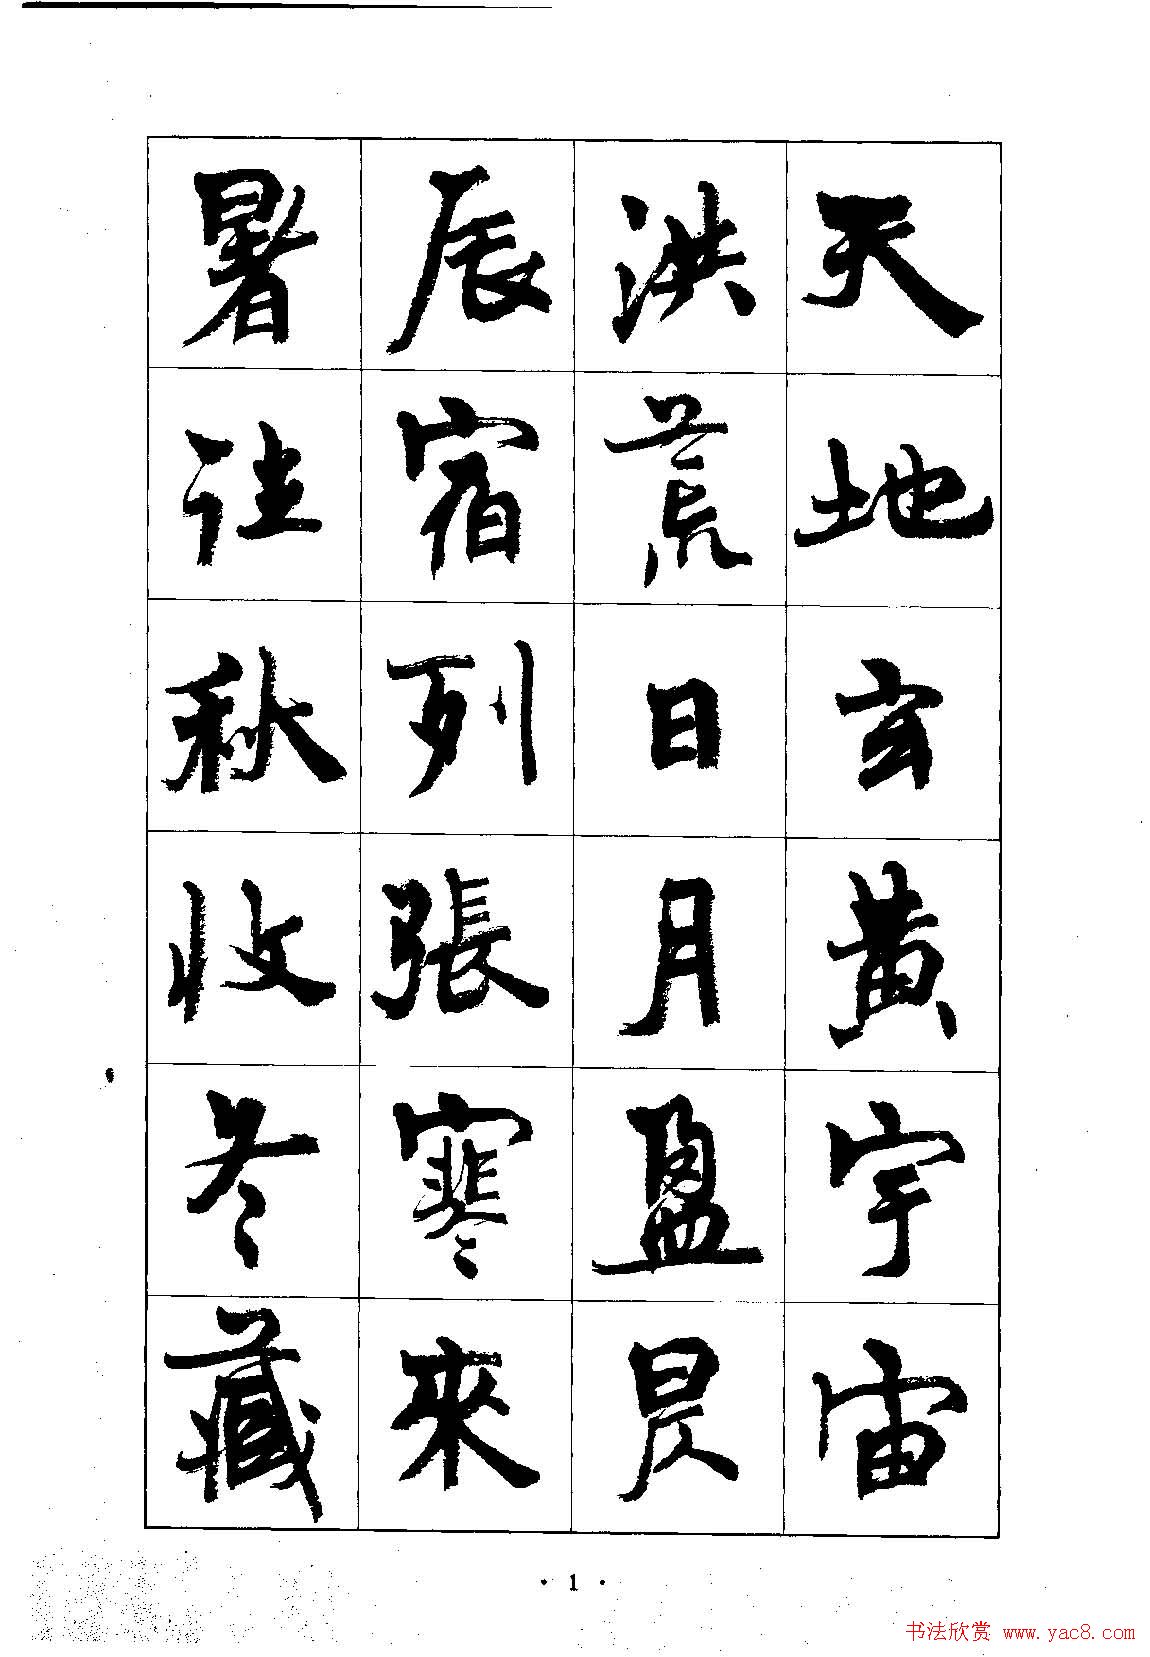 天地玄黄宇宙
洪荒日月盈昃
辰宿列張寒來
暑往秋收冬藏
· 1 ·
书法欣赏 www.yac8.com